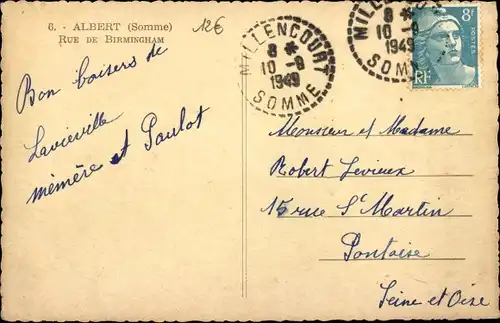 6. - ALBERT (Somme)
RUE DE BIRMINGHAM
12€
Bon baisers de
Lavieville
mémère et Paulot
MILLENCOURT
8 *
10 - 8
1949
SOMME
MILLENCOURT
8 *
10 - 8
1949
SOMME
8F
POSTES
RF
Monsieur et Madame
Robert Levieux
15 rue St Martin
Pontoise
Seine et Oise